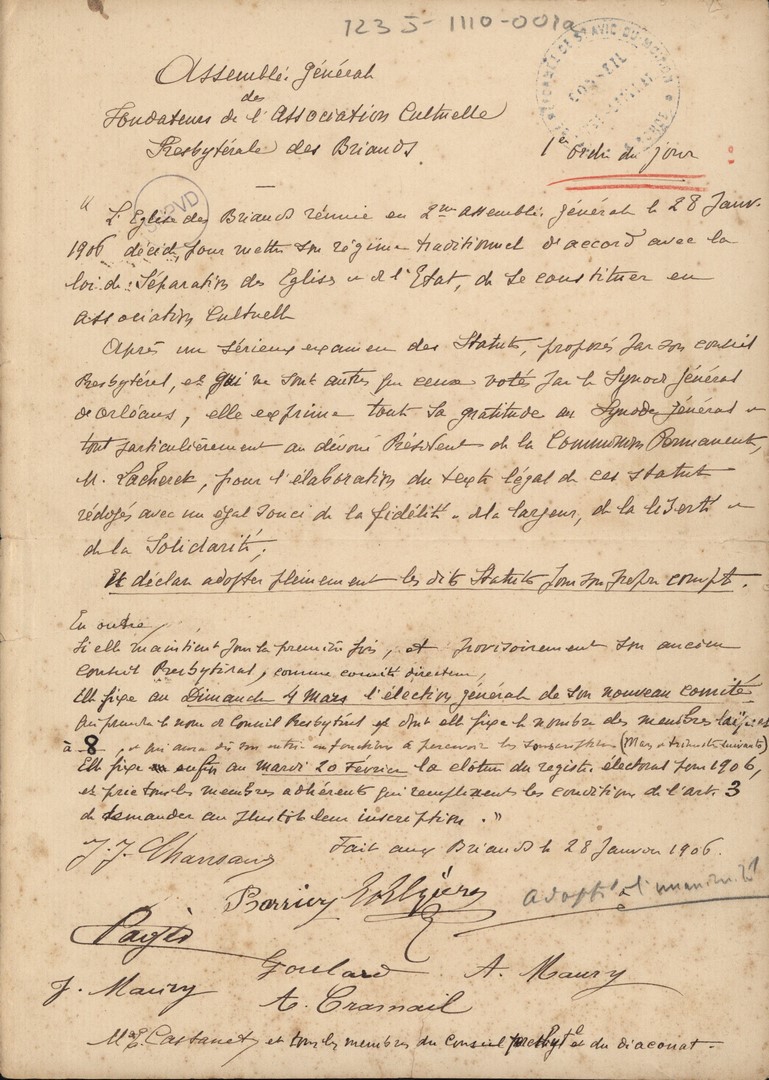 123 J-1110-001a
Assemblée général
des
Fondateurs de l'Association Cultuelle
Presbytérale des Briands
CONSEIL
1er ordre du jour
" L'Eglise des Briands réunie en 2me assemblée général le 28 Janv.
1906 décide, pour mettre son régime traditionnel d'accord avec la
loi de Séparation des Eglises et de l'Etat, de se constituer en
association Cultuelle
Après un sérieux examen des Statuts, proposés par son conseil
Presbytéral, et qui ne sont autres que ceux votés par le Synode général
d'orléans, elle exprime toute sa gratitude au Synode général et
tout particulièrement au dévoué Président de la Commission Permanente,
M. Lacheret, pour l'élaboration du texte légal de ces statuts
rédigés avec un égal souci de la fidélité et de la largeur, de la liberté et
de la Solidarité;
Et déclare adopter pleinement les dits Statuts pour son propre compte.
En outre,
Si elle maintient pour la première fois, et provisoirement son ancien
conseil Presbytéral, comme comité directeur,
Elle fixe au Dimanche 4 Mars l'élection générale de son nouveau comité
qui prendra le nom de Conseil Presbytéral et dont elle fixe le nombre des membres laïques
à 8, et qui aura dès son entrée en fonctions à percevoir les souscriptions (Mars et trimestres suivants)
Elle fixe enfin au mardi 20 Février la clôture du registre électoral pour 1906,
et prie tous les membres adhérents qui remplissent les conditions de l'art. 3
de demander au plustôt leur inscription. "
Fait aux Briands le 28 Janvier 1906.
adopté à l'unanimité
Pagès
Goulard A. Maury
J. Maury A. Cramail
Castanet et tous les membres du conseil presbytal et du diaconat.